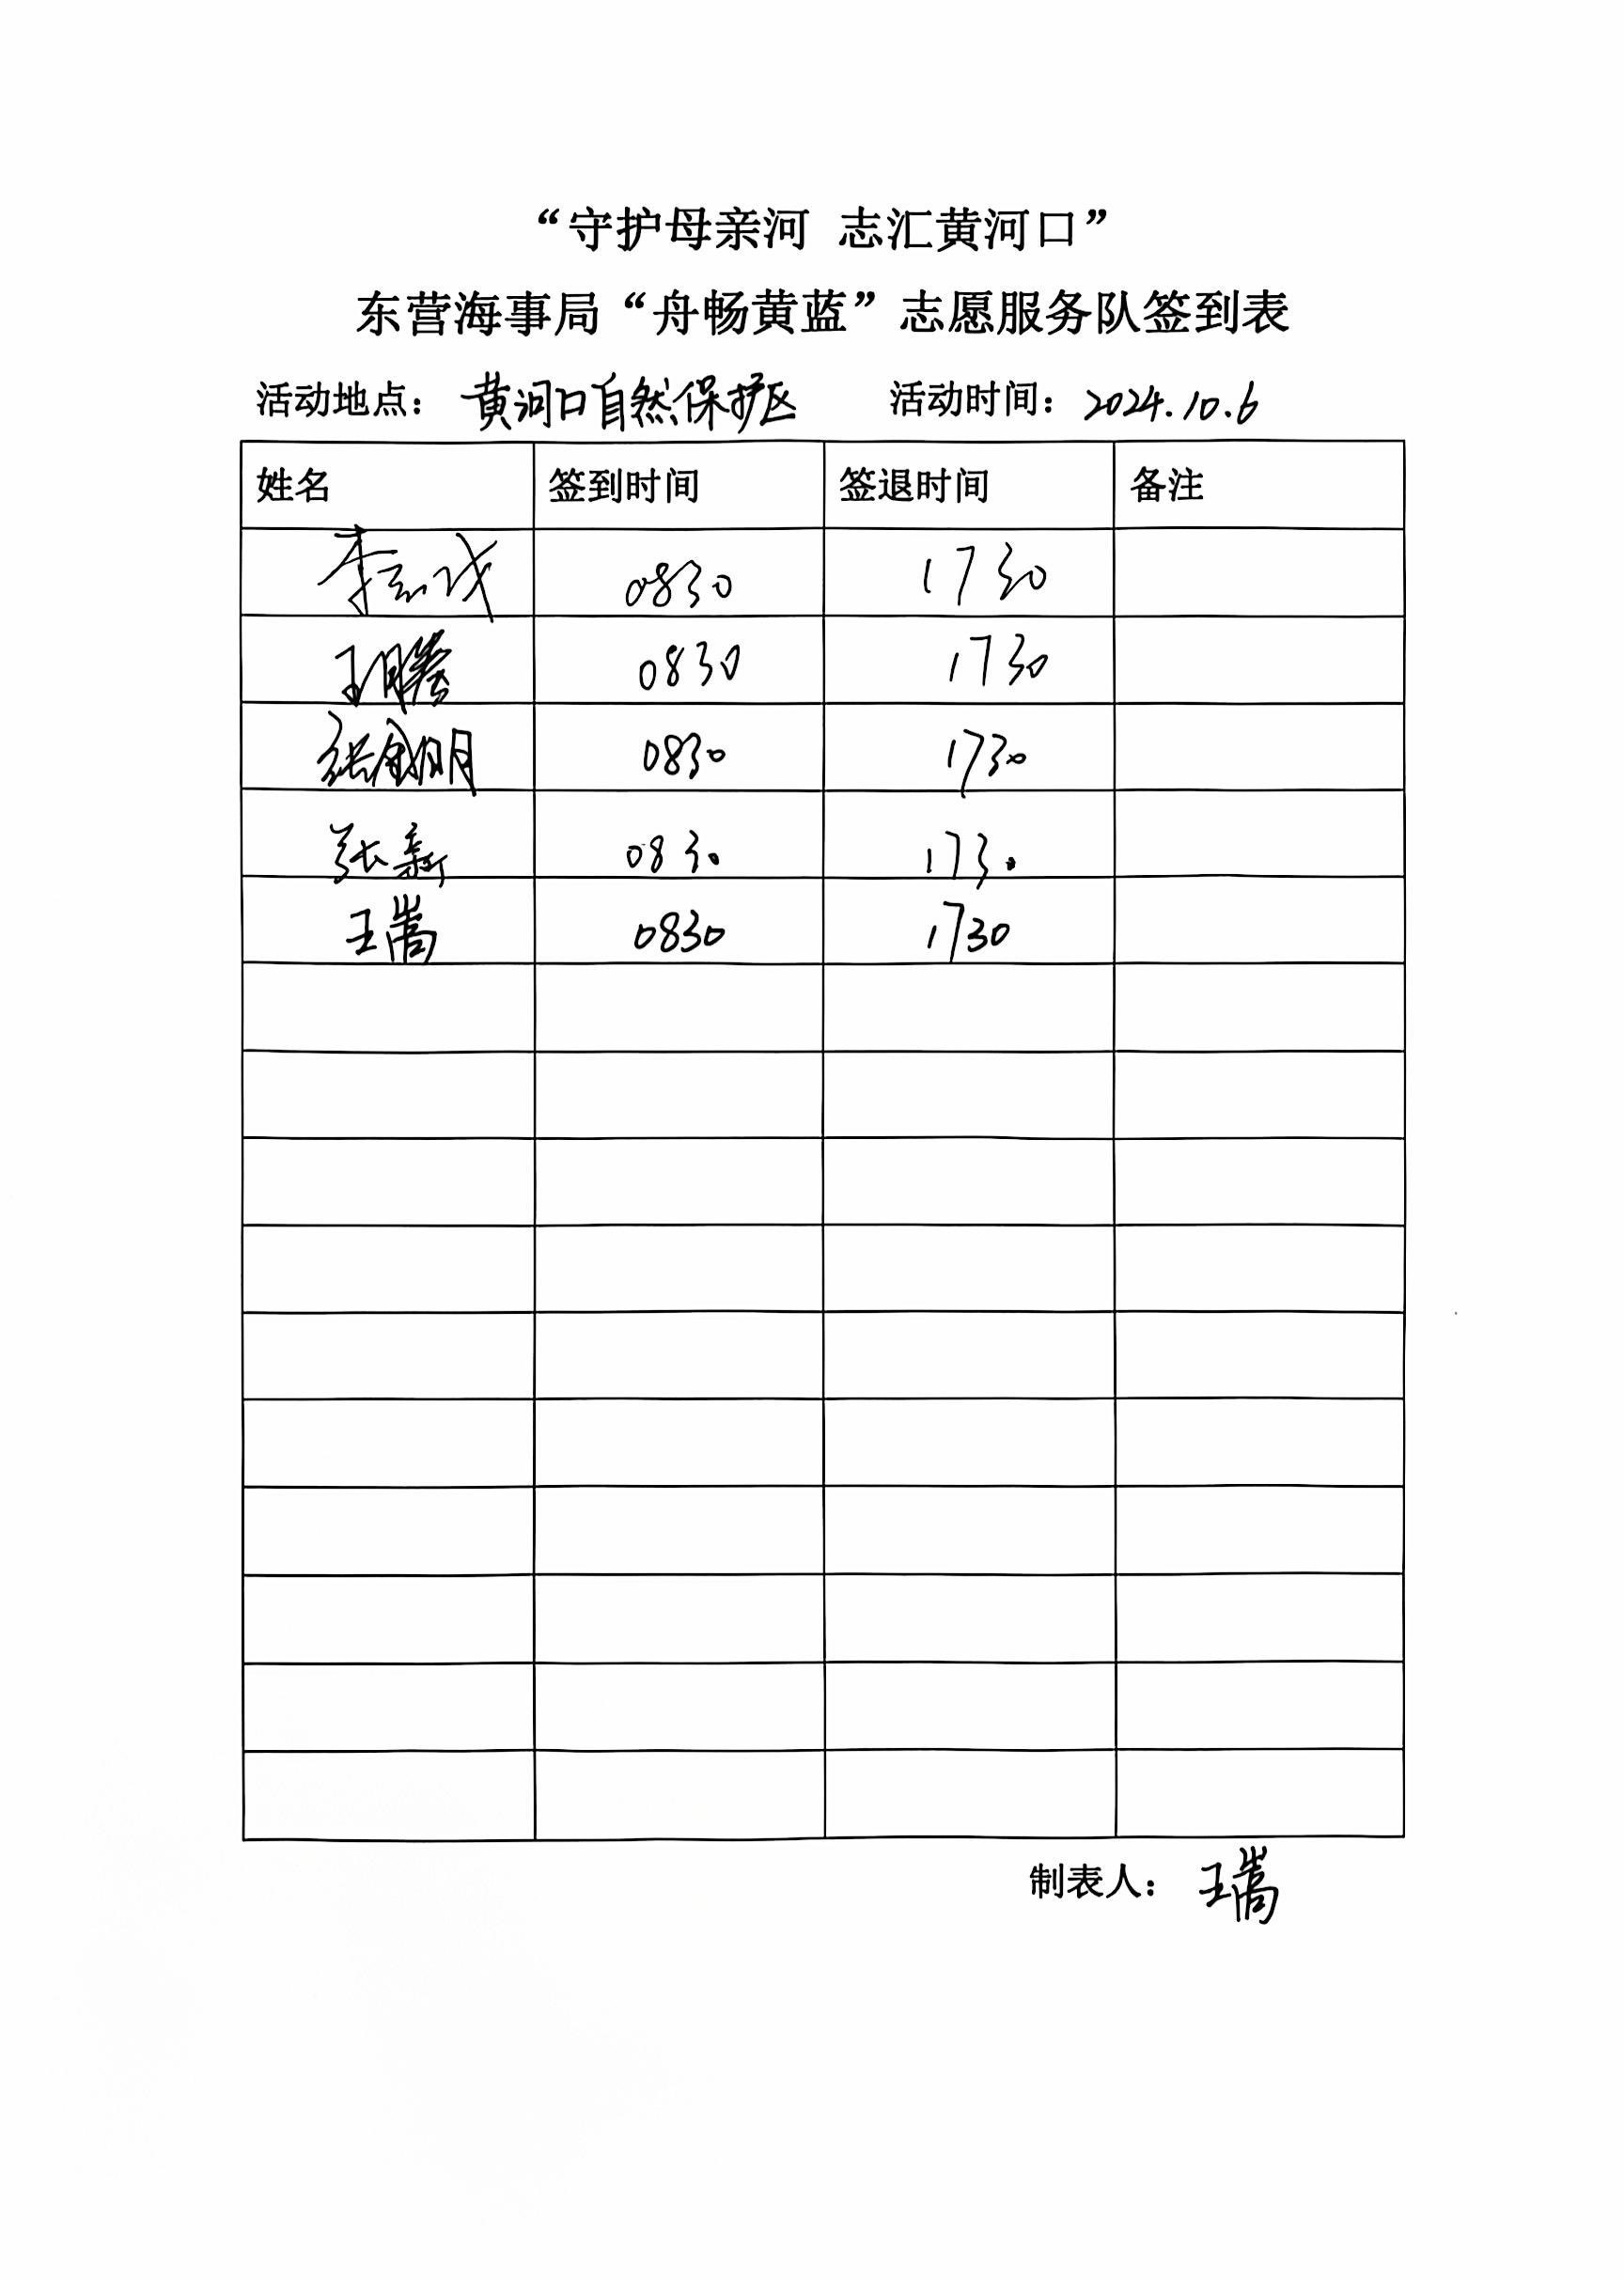 “守护母亲河 志汇黄河口”
东营海事局“舟畅黄蓝”志愿服务队签到表
活动地点： 黄河口自然保护区 活动时间：2024.10.6
姓名 签到时间 签退时间 备注
李志成 0830 1730
王腾 0830 1730
张金明 0830 1730
张新 0830 1730
王嵩 0830 1730
制表人： 王嵩